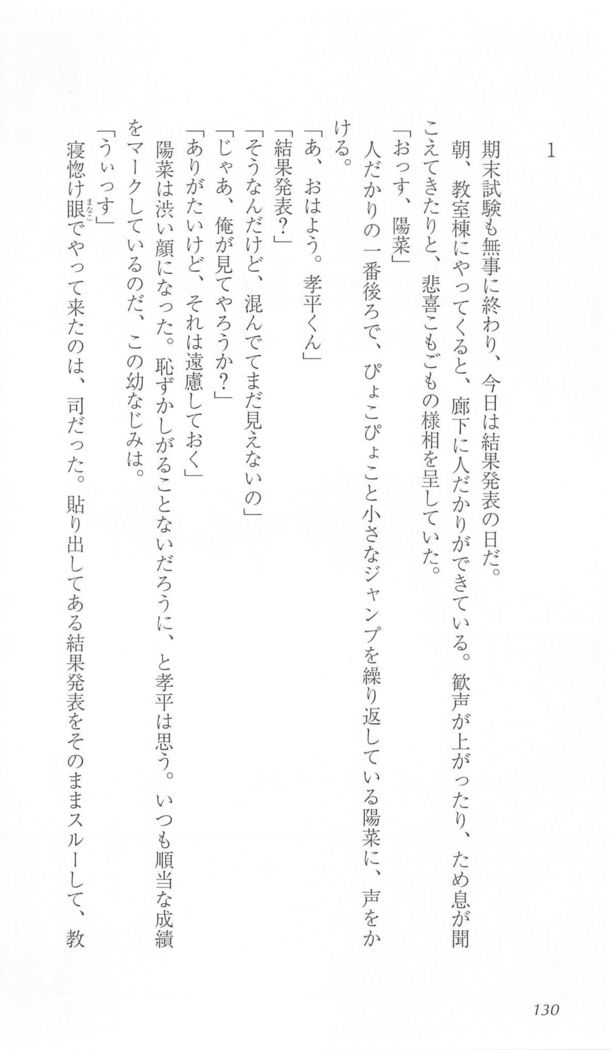 1
期末試験も無事に終わり、今日は結果発表の日だ。
朝、教室棟にやってくると、廊下に人だかりができている。歓声が上がったり、ため息が聞
こえてきたりと、悲喜こもごもの様相を呈していた。
「おっす、陽菜」
人だかりの一番後ろで、ぴょこぴょこと小さなジャンプを繰り返している陽菜に、声をか
ける。
「あ、おはよう。孝平くん」
「結果発表？」
「そうなんだけど、混んでてまだ見えないの」
「じゃあ、俺が見てやろうか？」
「ありがたいけど、それは遠慮しておく」
陽菜は渋い顔になった。恥ずかしがることないだろうに、と孝平は思う。いつも順当な成績
をマークしているのだ、この幼なじみは。
「うぃっす」
寝惚け眼でやって来たのは、司だった。貼り出してある結果発表をそのままスルーして、教
まなこ
130